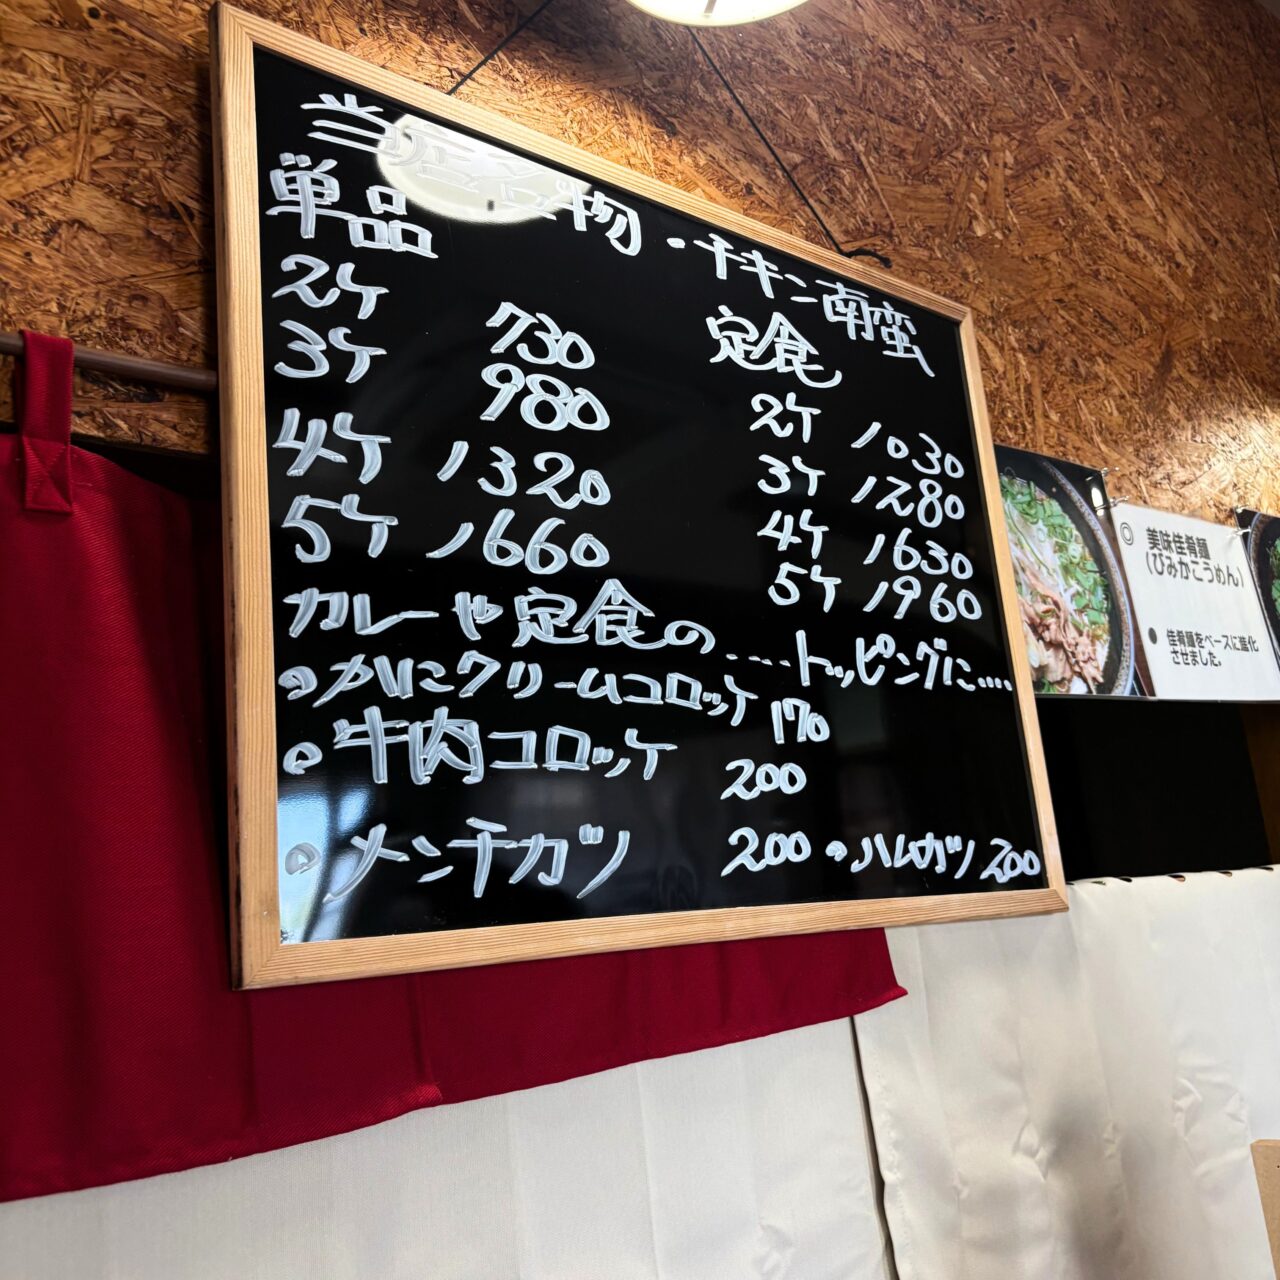 当店名物・チキン南蛮
単品
2ケ 730
3ケ 980
4ケ 1320
5ケ 1660
定食
2ケ 1030
3ケ 1280
4ケ 1630
5ケ 1960
カレーや定食の....トッピングに....
●かにクリームコロッケ 170
●牛肉コロッケ 200
●メンチカツ 200 ●ハムカツ 200
◎ 美味佳肴麺
(びみかこうめん)
● 佳肴麺をベースに進化
させました。